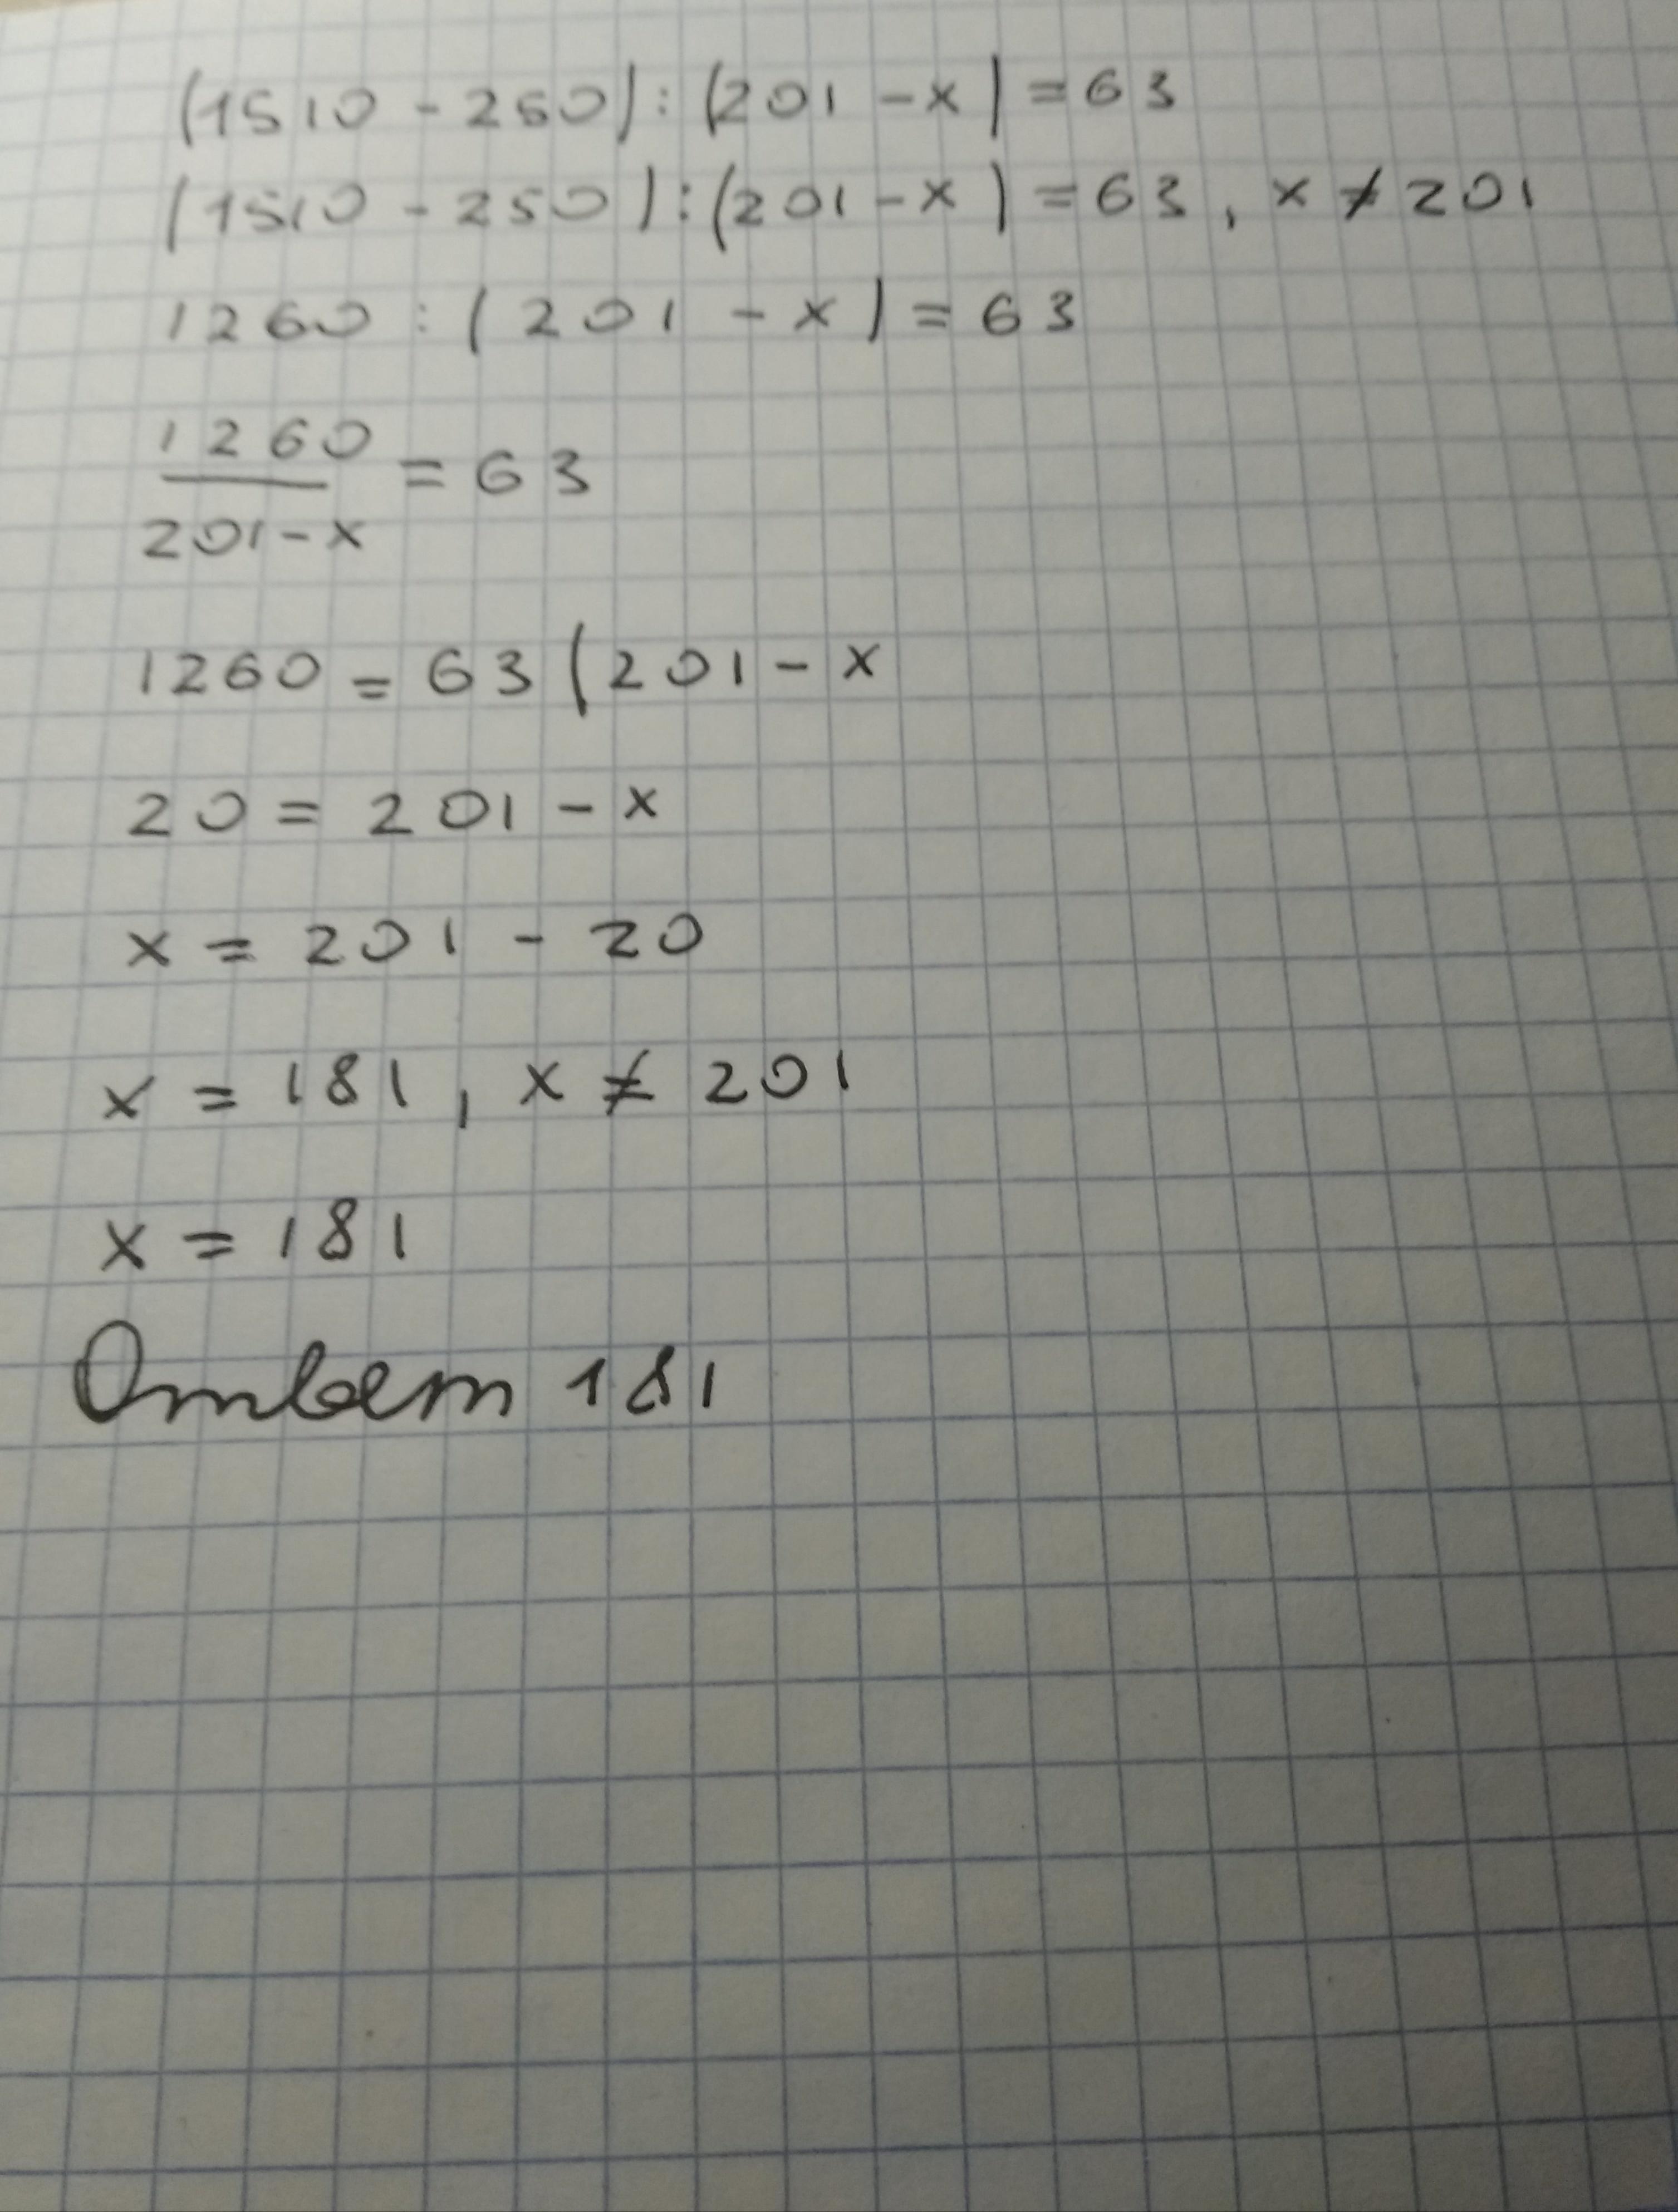 (1510 - 250) : (201 - x) = 63
(1510 - 250) : (201 - x) = 63, x ≠ 201
1260 : (201 - x) = 63
1260
―――― = 63
201 - x
1260 = 63 (201 - x
20 = 201 - x
x = 201 - 20
x = 181, x ≠ 201
x = 181
Ответ 181